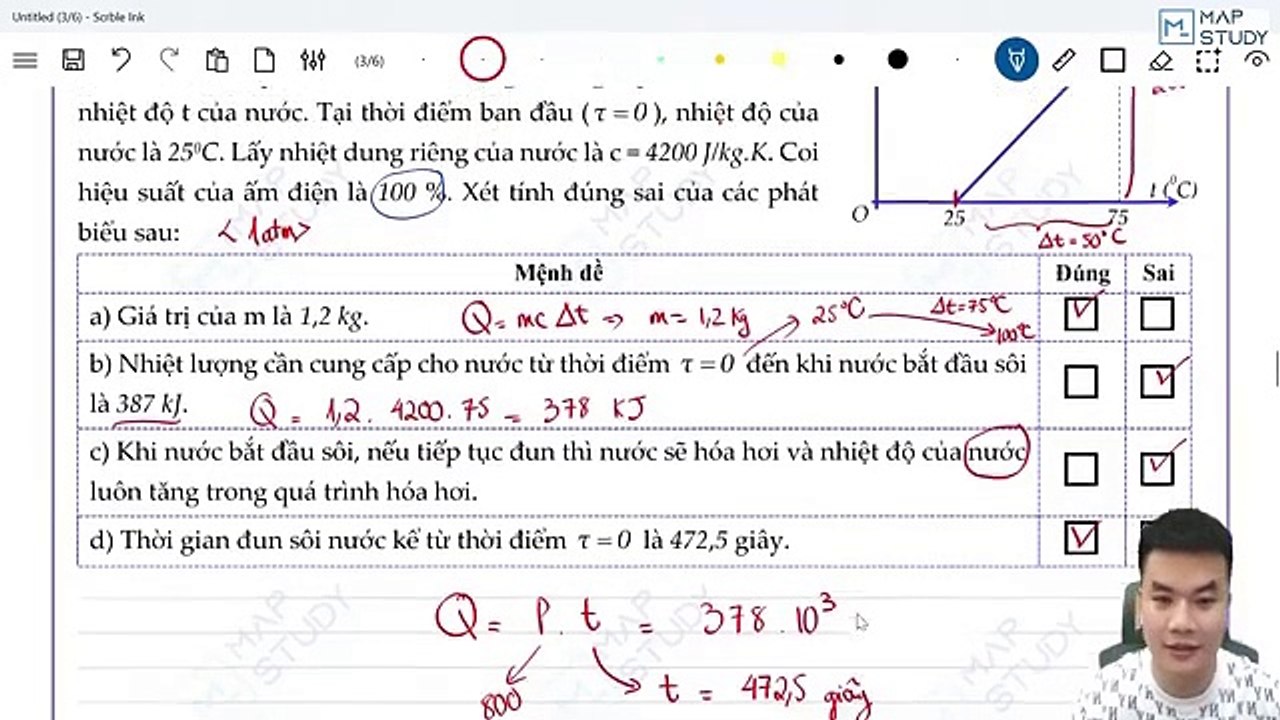 Untitled (3/6) - Scrble Ink
MAP
STUDY
(3/6)
nhiệt độ t của nước. Tại thời điểm ban đầu (τ = 0), nhiệt độ của
nước là 25⁰C. Lấy nhiệt dung riêng của nước là c = 4200 J/kg.K. Coi
hiệu suất của ấm điện là 100 %. Xét tính đúng sai của các phát
biểu sau: < 1atm >
t (⁰C)
O 25 75
Δt = 50°C
Mệnh đề Đúng Sai
a) Giá trị của m là 1,2 kg. Q = mc Δt => m = 1,2 kg 25°C Δt = 75°C 100°C
b) Nhiệt lượng cần cung cấp cho nước từ thời điểm τ = 0 đến khi nước bắt đầu sôi
là 387 kJ. Q = 1,2 . 4200 . 75 = 378 KJ
c) Khi nước bắt đầu sôi, nếu tiếp tục đun thì nước sẽ hóa hơi và nhiệt độ của nước
luôn tăng trong quá trình hóa hơi.
d) Thời gian đun sôi nước kể từ thời điểm τ = 0 là 472,5 giây.
Q = P . t = 378 . 10³
800 t = 472,5 giây